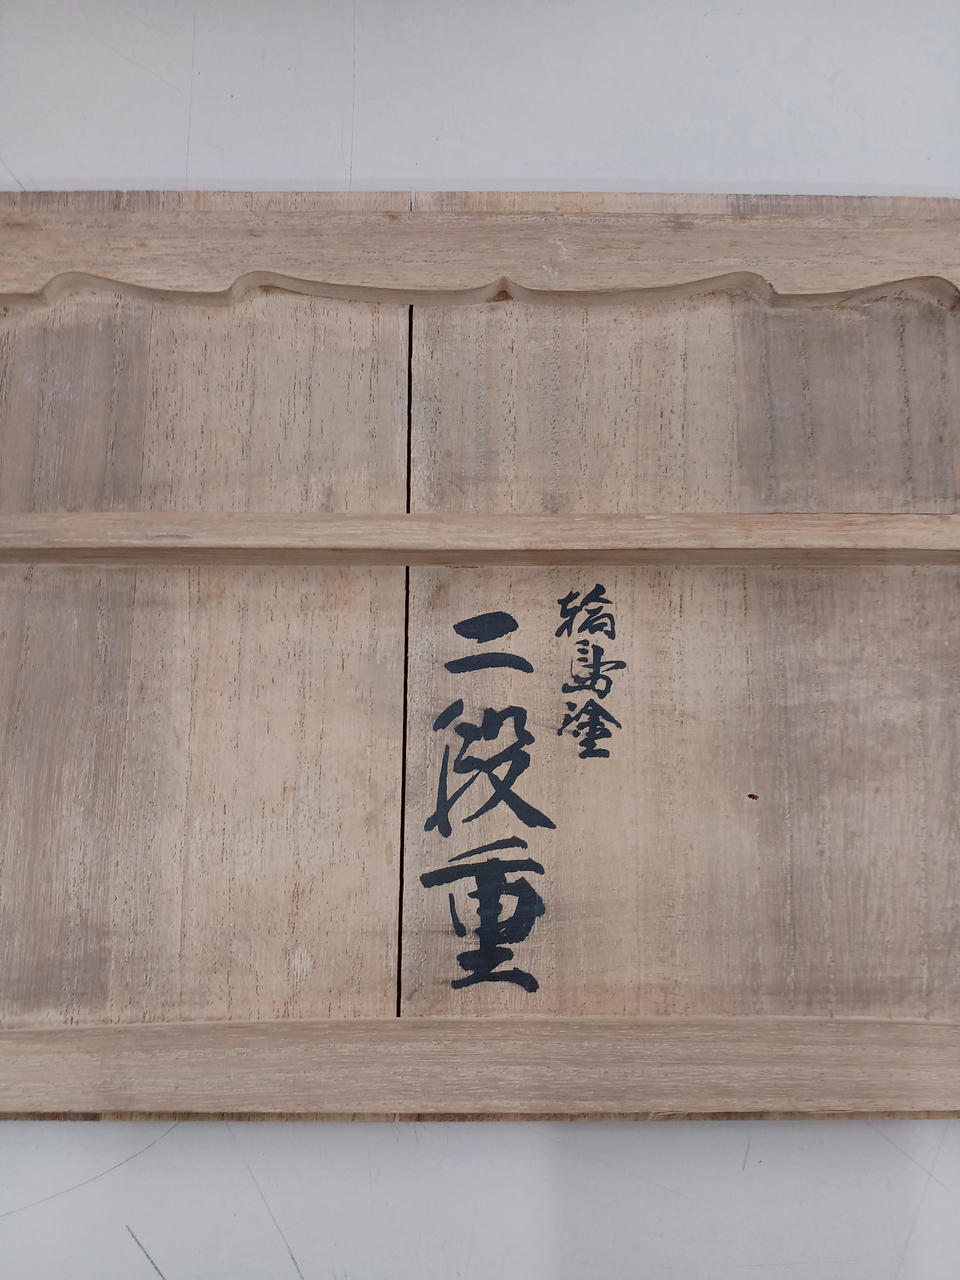 輪島塗
二段重